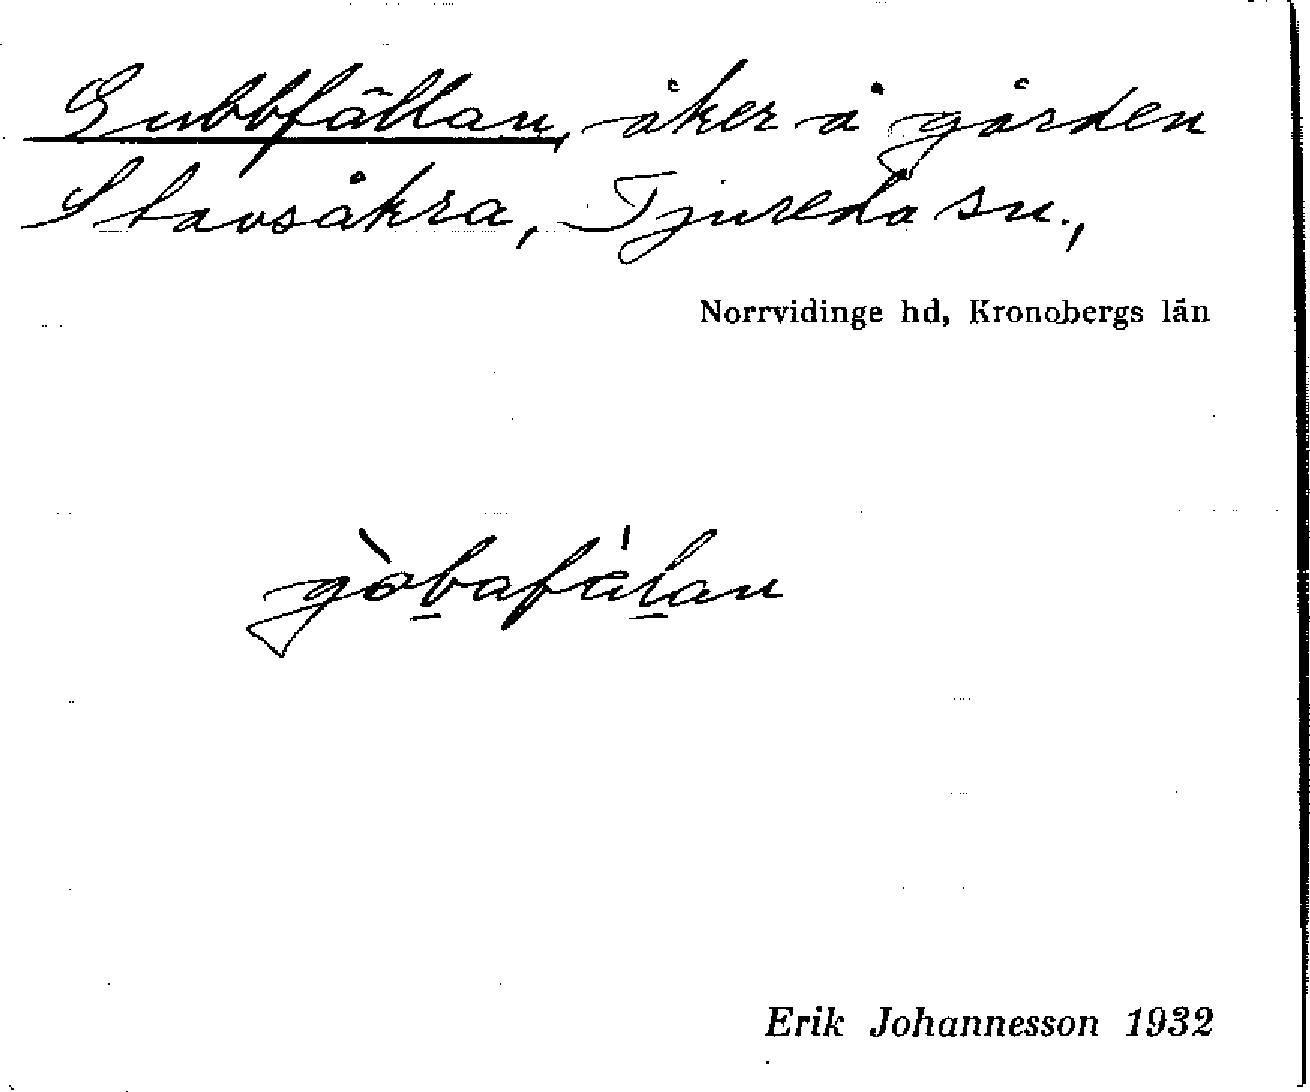 Gubbfällan, åker å gården
Stavsåkra, Tjureda sn.,
Norrvidinge hd, Kronobergs län
gòbafälan
Erik Johannesson 1932